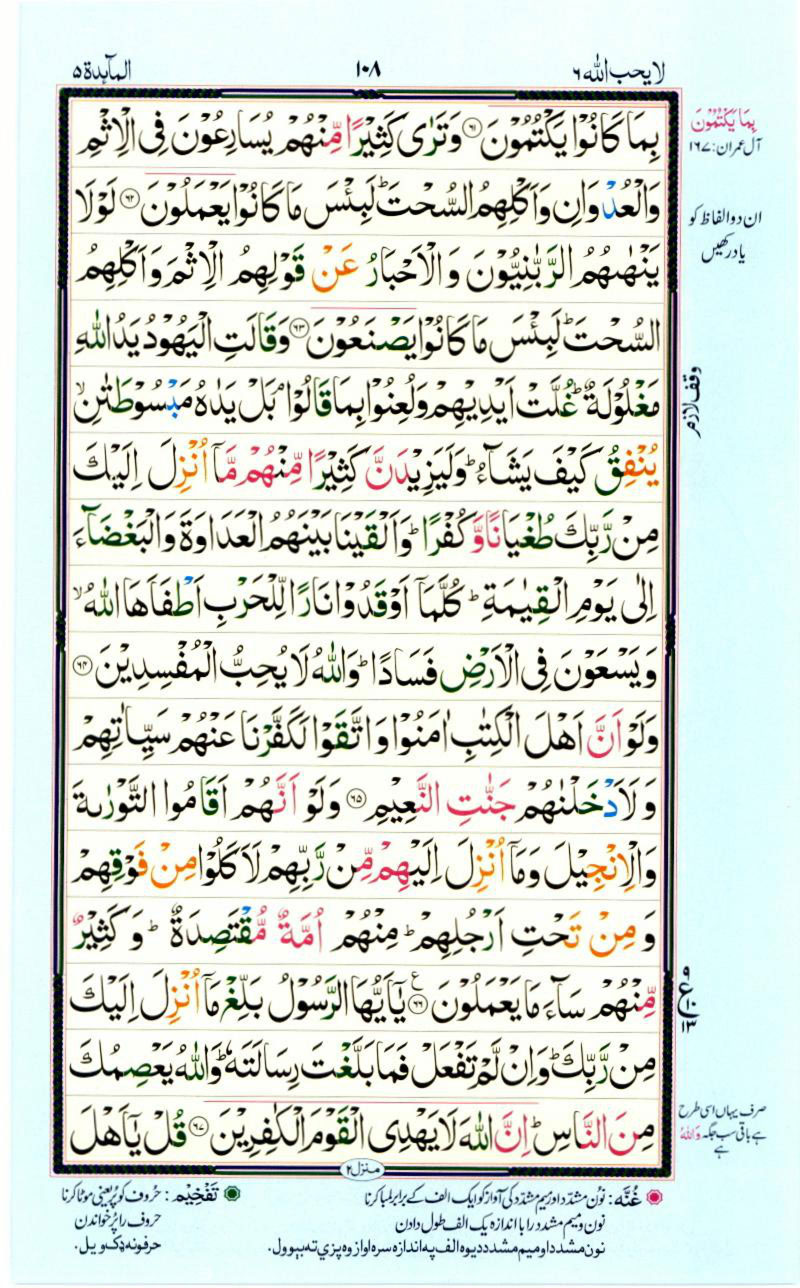 لا یحب الله ۶
۱۰۸
المآىٕدة ۵
بِمَا كَانُوْا يَكْتُمُوْنَ ۝۶۱ وَتَرٰى كَثِيْرًا مِّنْهُمْ يُسَارِعُوْنَ فِى الْاِثْمِ
بِمَا يَكْتُمُوْنَ
آل عمران: ۱۶۷
وَالْعُدْوَانِ وَاَكْلِهِمُ السُّحْتَ ؕ لَبِئْسَ مَا كَانُوْا يَعْمَلُوْنَ ۝۶۲ لَوْلَا
ان دو الفاظ کو
یاد رکھیں
يَنْهٰىهُمُ الرَّبّٰنِيُّوْنَ وَالْاَحْبَارُ عَنْ قَوْلِهِمُ الْاِثْمَ وَاَكْلِهِمُ
السُّحْتَ ؕ لَبِئْسَ مَا كَانُوْا يَصْنَعُوْنَ ۝۶۳ وَقَالَتِ الْيَهُوْدُ يَدُ اللّٰهِ
مَغْلُوْلَةٌ ؕ غُلَّتْ اَيْدِيْهِمْ وَلُعِنُوْا بِمَا قَالُوْا ۘ بَلْ يَدٰهُ مَبْسُوْطَتٰنِ ۙ
وقف لازم
يُنْفِقُ كَيْفَ يَشَآءُ ؕ وَلَيَزِيْدَنَّ كَثِيْرًا مِّنْهُمْ مَّآ اُنْزِلَ اِلَيْكَ
مِنْ رَّبِّكَ طُغْيَانًا وَّكُفْرًا ؕ وَاَلْقَيْنَا بَيْنَهُمُ الْعَدَاوَةَ وَالْبَغْضَآءَ
اِلٰى يَوْمِ الْقِيٰمَةِ ؕ كُلَّمَآ اَوْقَدُوْا نَارًا لِّلْحَرْبِ اَطْفَاَهَا اللّٰهُ ۙ
وَيَسْعَوْنَ فِى الْاَرْضِ فَسَادًا ؕ وَاللّٰهُ لَا يُحِبُّ الْمُفْسِدِيْنَ ۝۶۴
وَلَوْ اَنَّ اَهْلَ الْكِتٰبِ اٰمَنُوْا وَاتَّقَوْا لَكَفَّرْنَا عَنْهُمْ سَيِّاٰتِهِمْ
وَلَاَدْخَلْنٰهُمْ جَنّٰتِ النَّعِيْمِ ۝۶۵ وَلَوْ اَنَّهُمْ اَقَامُوا التَّوْرٰىةَ
وَالْاِنْجِيْلَ وَمَآ اُنْزِلَ اِلَيْهِمْ مِّنْ رَّبِّهِمْ لَاَكَلُوْا مِنْ فَوْقِهِمْ
وَمِنْ تَحْتِ اَرْجُلِهِمْ ؕ مِنْهُمْ اُمَّةٌ مُّقْتَصِدَةٌ ؕ وَكَثِيْرٌ
مِّنْهُمْ سَآءَ مَا يَعْمَلُوْنَ ۝۶۶ ع يٰٓاَيُّهَا الرَّسُوْلُ بَلِّغْ مَآ اُنْزِلَ اِلَيْكَ
مِنْ رَّبِّكَ ؕ وَاِنْ لَّمْ تَفْعَلْ فَمَا بَلَّغْتَ رِسَالَتَهٗ ؕ وَاللّٰهُ يَعْصِمُكَ
مِنَ النَّاسِ ؕ اِنَّ اللّٰهَ لَا يَهْدِى الْقَوْمَ الْكٰفِرِيْنَ ۝۶۷ قُلْ يٰٓاَهْلَ
صرف یہاں اسی طرح
ہے باقی سب جگہ وَاللهُ
ہے
منزل ۲
غُنَّه: نون مشدد اور میم مشدد کی آواز کو ایک الف کے برابر لمبا کرنا
نون و میم مشدد را با اندازه یک الف طول دادن
نون مشدد او میم مشدد دیوه الف په اندازه سره اواز وه پزي ته ببوول.
تَفْخِيْم: حروف کو پُر یعنی موٹا کرنا
حروف را پُر خواندن
حرفونه ډک ویل.